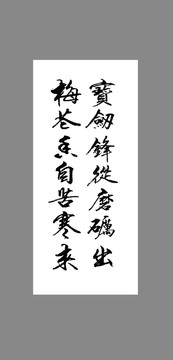 寶劍鋒從磨礪出
梅花香自苦寒来